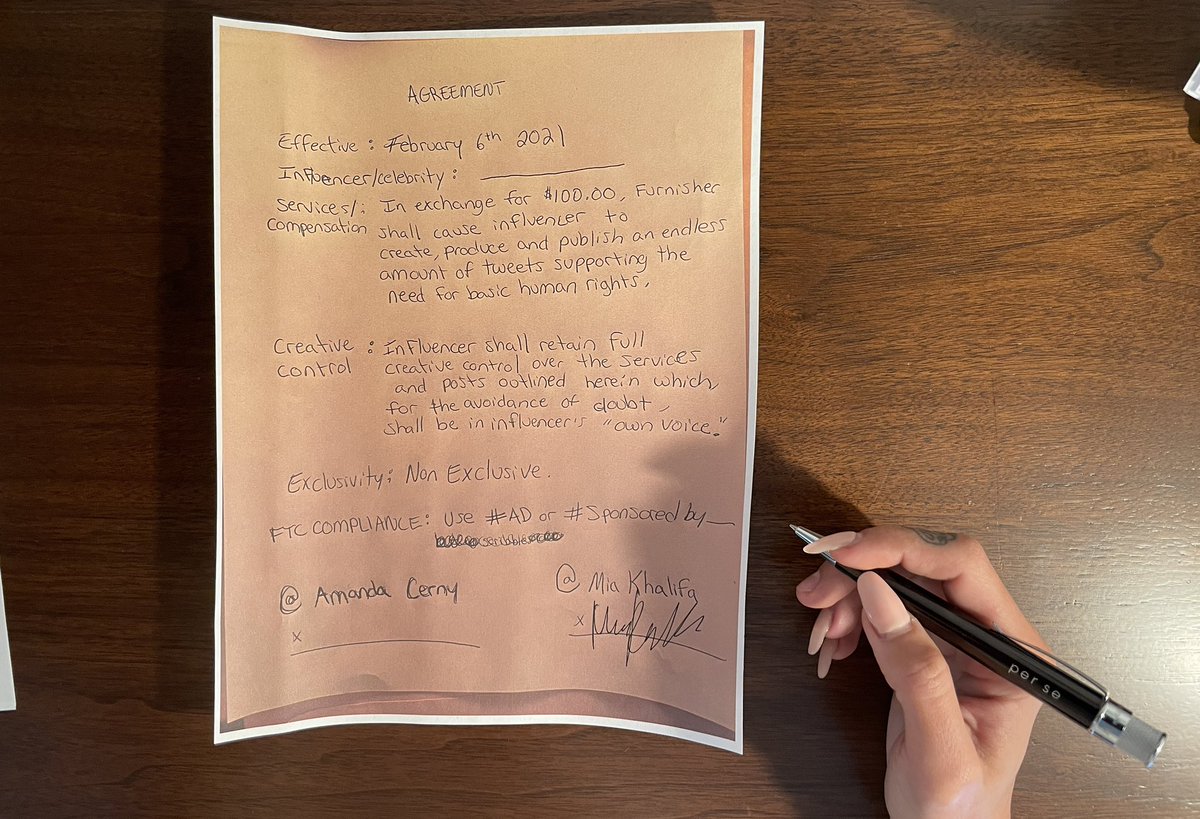 AGREEMENT
Effective : February 6th 2021
Influencer/celebrity : ________
Services/: In exchange for $100.00, Furnisher
compensation shall cause influencer to
create, produce and publish an endless
amount of tweets supporting the
need for basic human rights.
Creative : Influencer shall retain full
control creative control over the services
and posts outlined herein which,
for the avoidance of doubt,
shall be in influencer's "own voice."
Exclusivity: Non Exclusive.
FTC COMPLIANCE: Use #AD or #Sponsored by __
scribbles
@ Amanda Cerny
x ________
@ Mia Khalifa
x
per se